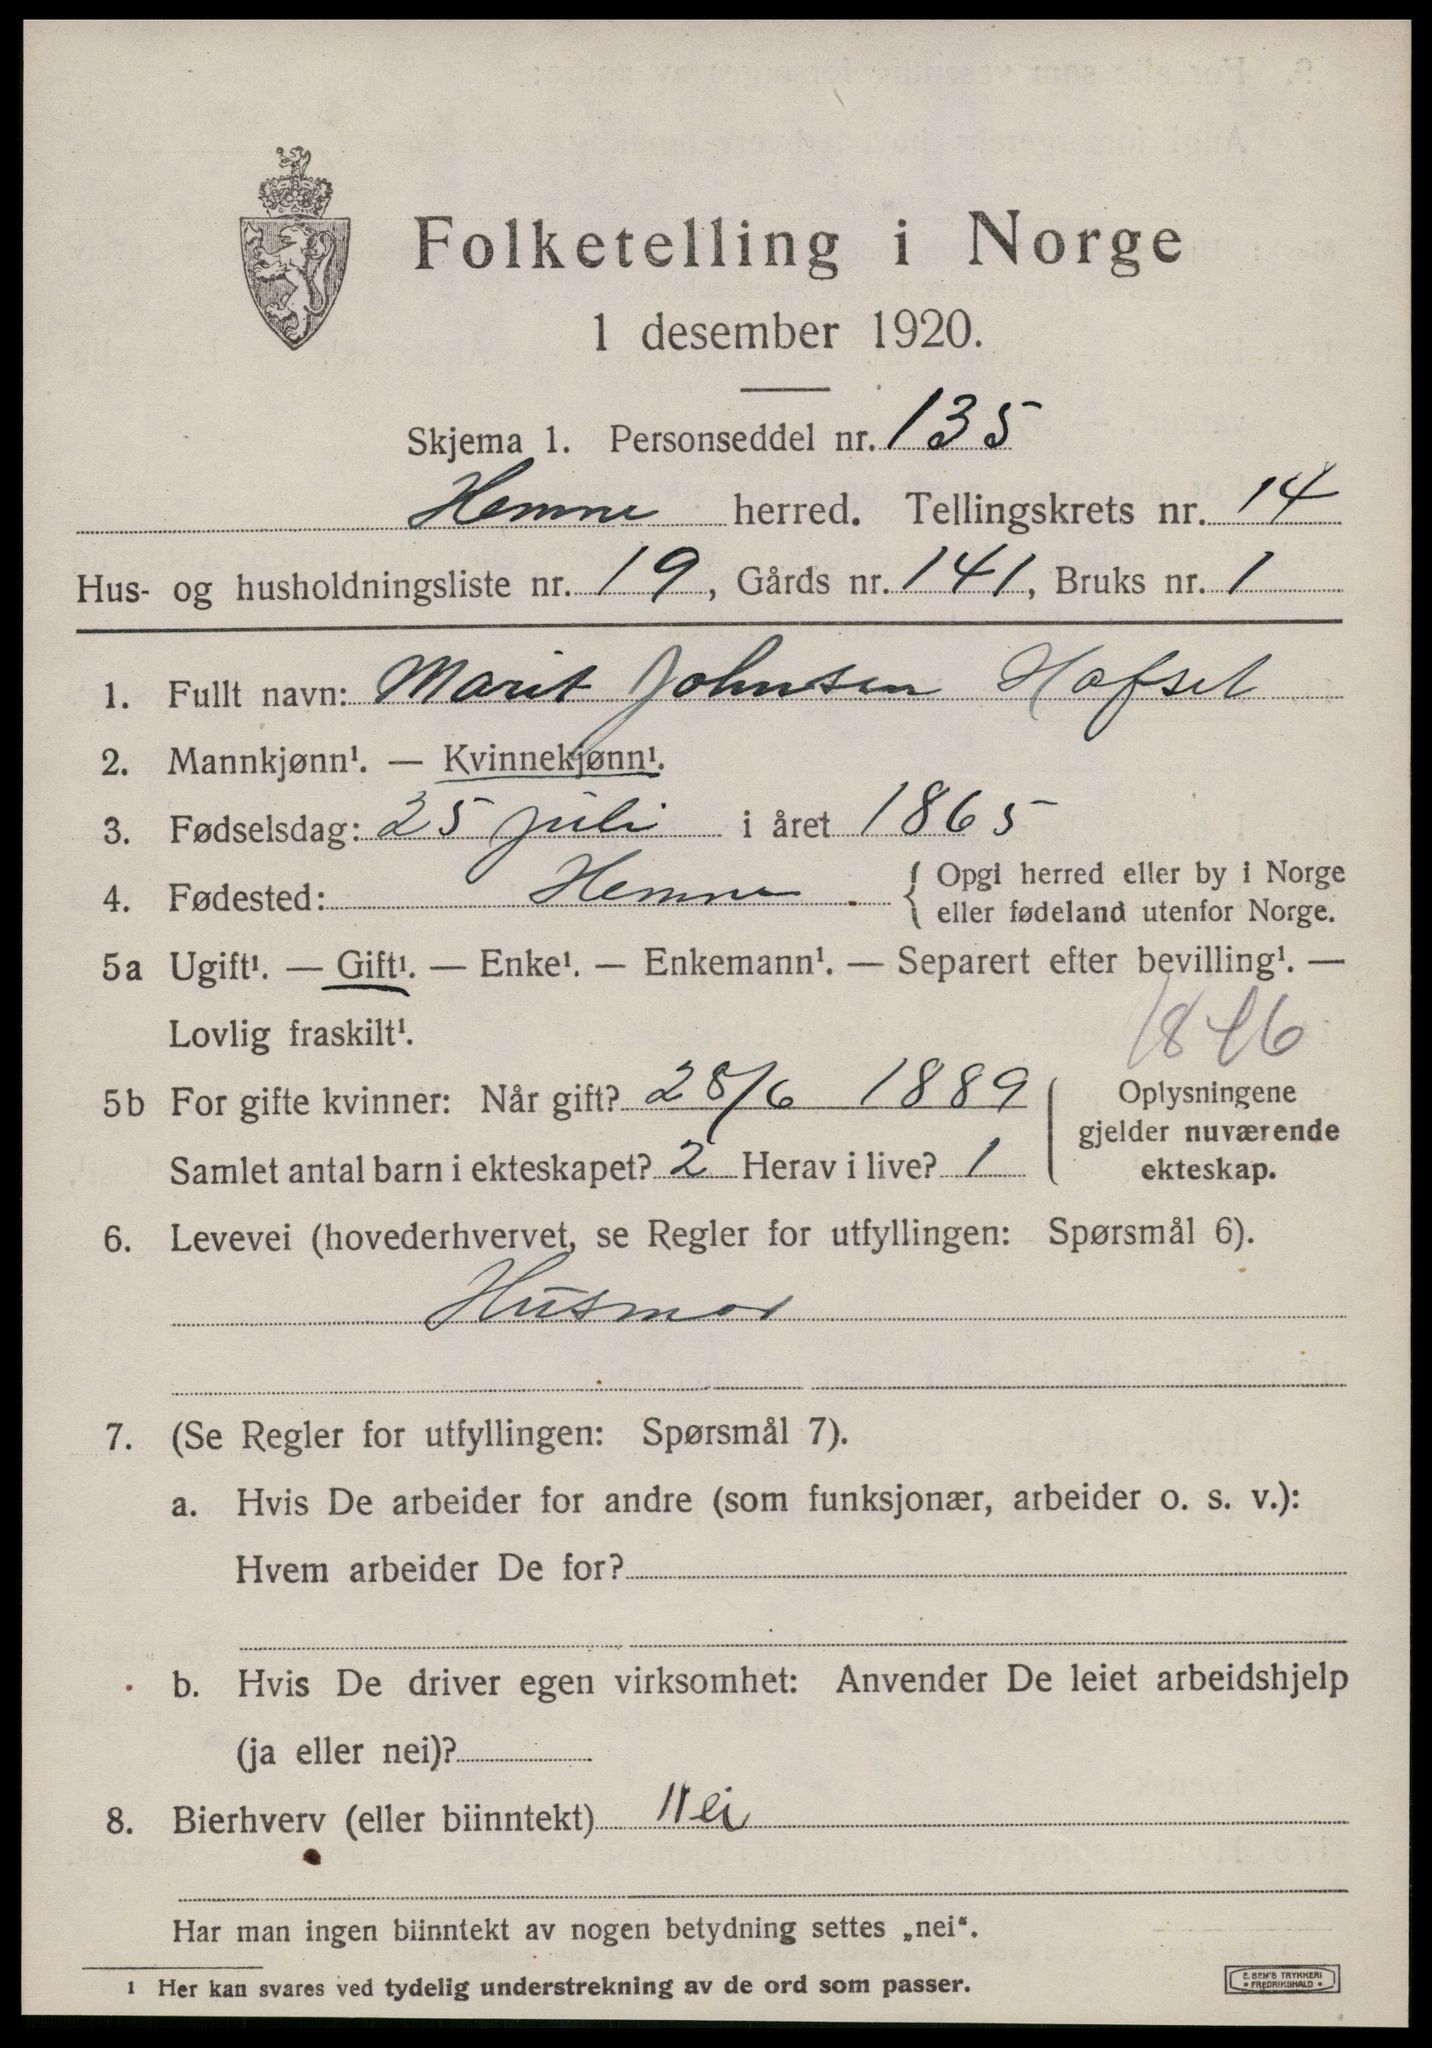 Folketelling i Norge
1 desember 1920.
Skjema 1. Personseddel nr. 135
Hemne herred. Tellingskrets nr. 14
Hus- og husholdningsliste nr. 19, Gårds nr. 141, Bruks nr. 1
1. Fullt navn: Marit Johnsen Hafsel
2. Mannkjønn¹. — Kvinnekjønn¹.
3. Fødselsdag: 25 juli i året 1865
4. Fødested: Hemne { Opgi herred eller by i Norge
eller fødeland utenfor Norge.
5a Ugift¹. — Gift¹. — Enke¹. — Enkemann¹. — Separert efter bevilling¹. —
Lovlig fraskilt¹.
1846
5b For gifte kvinner: Når gift? 28/6 1889
Samlet antal barn i ekteskapet? 2 Herav i live? 1
Oplysningene
gjelder nuværende
ekteskap.
6. Levevei (hovederhvervet, se Regler for utfyllingen: Spørsmål 6).
Husmor
7. (Se Regler for utfyllingen: Spørsmål 7).
a. Hvis De arbeider for andre (som funksjonær, arbeider o. s. v.):
Hvem arbeider De for?
b. Hvis De driver egen virksomhet: Anvender De leiet arbeidshjelp
(ja eller nei)?
8. Bierhverv (eller biinntekt) Nei
Har man ingen biinntekt av nogen betydning settes „nei“.
1 Her kan svares ved tydelig understrekning av de ord som passer.
E. SEM'S TRYKKERI
FREDRIKSHALD